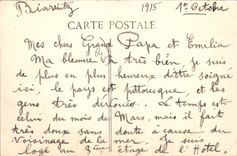 Biarritz 1915 1er Octobre
CARTE POSTALE
Mes chers Grand Papa et Emilia
Ma blessure va très bien, je suis
de plus en plus heureux d'être soigné
ici, le pays est pittoresque, et les
gens très dévoués. Le temps est
celui du mois de Mars, mais il fait
très doux sans doute à cause du
voisinage de la mer. Je suis
logé au 3ème étage de l'Hotel.